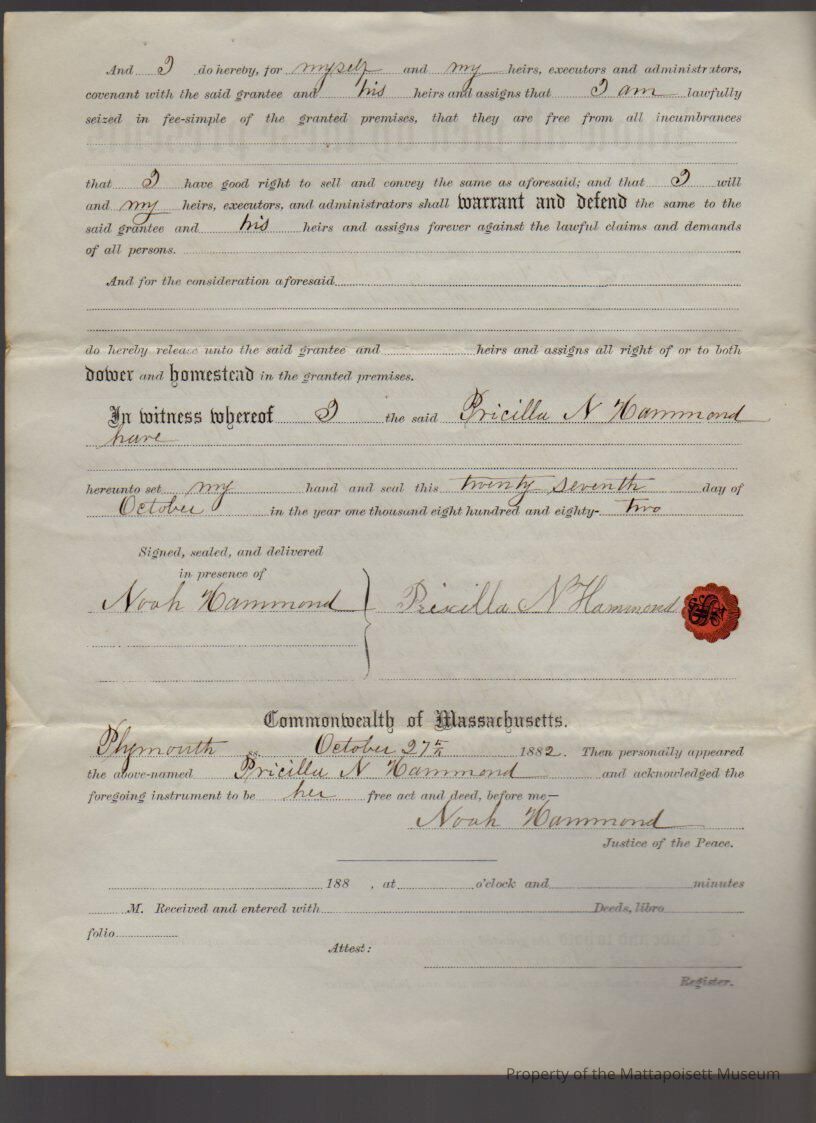 And I do hereby, for myself and my heirs, executors and administrators,
covenant with the said grantee and his heirs and assigns that I am lawfully
seized in fee-simple of the granted premises, that they are free from all incumbrances
that I have good right to sell and convey the same as aforesaid; and that I will
and my heirs, executors, and administrators shall warrant and defend the same to the
said grantee and his heirs and assigns forever against the lawful claims and demands
of all persons.
And for the consideration aforesaid
do hereby release unto the said grantee and heirs and assigns all right of or to both
dower and homestead in the granted premises.
In witness whereof I the said Pricilla N Hammond
have
hereunto set my hand and seal this twenty seventh day of
October in the year one thousand eight hundred and eighty-two
Signed, sealed, and delivered
in presence of
Noah Hammond Pricilla N Hammond
Commonwealth of Massachusetts.
Plymouth ss. October 27th 1882. Then personally appeared
the above-named Pricilla N Hammond and acknowledged the
foregoing instrument to be her free act and deed, before me—
Noah Hammond
Justice of the Peace.
188 , at o'clock and minutes
M. Received and entered with Deeds, libro
folio
Attest:
Register.
Property of the Mattapoisett Museum